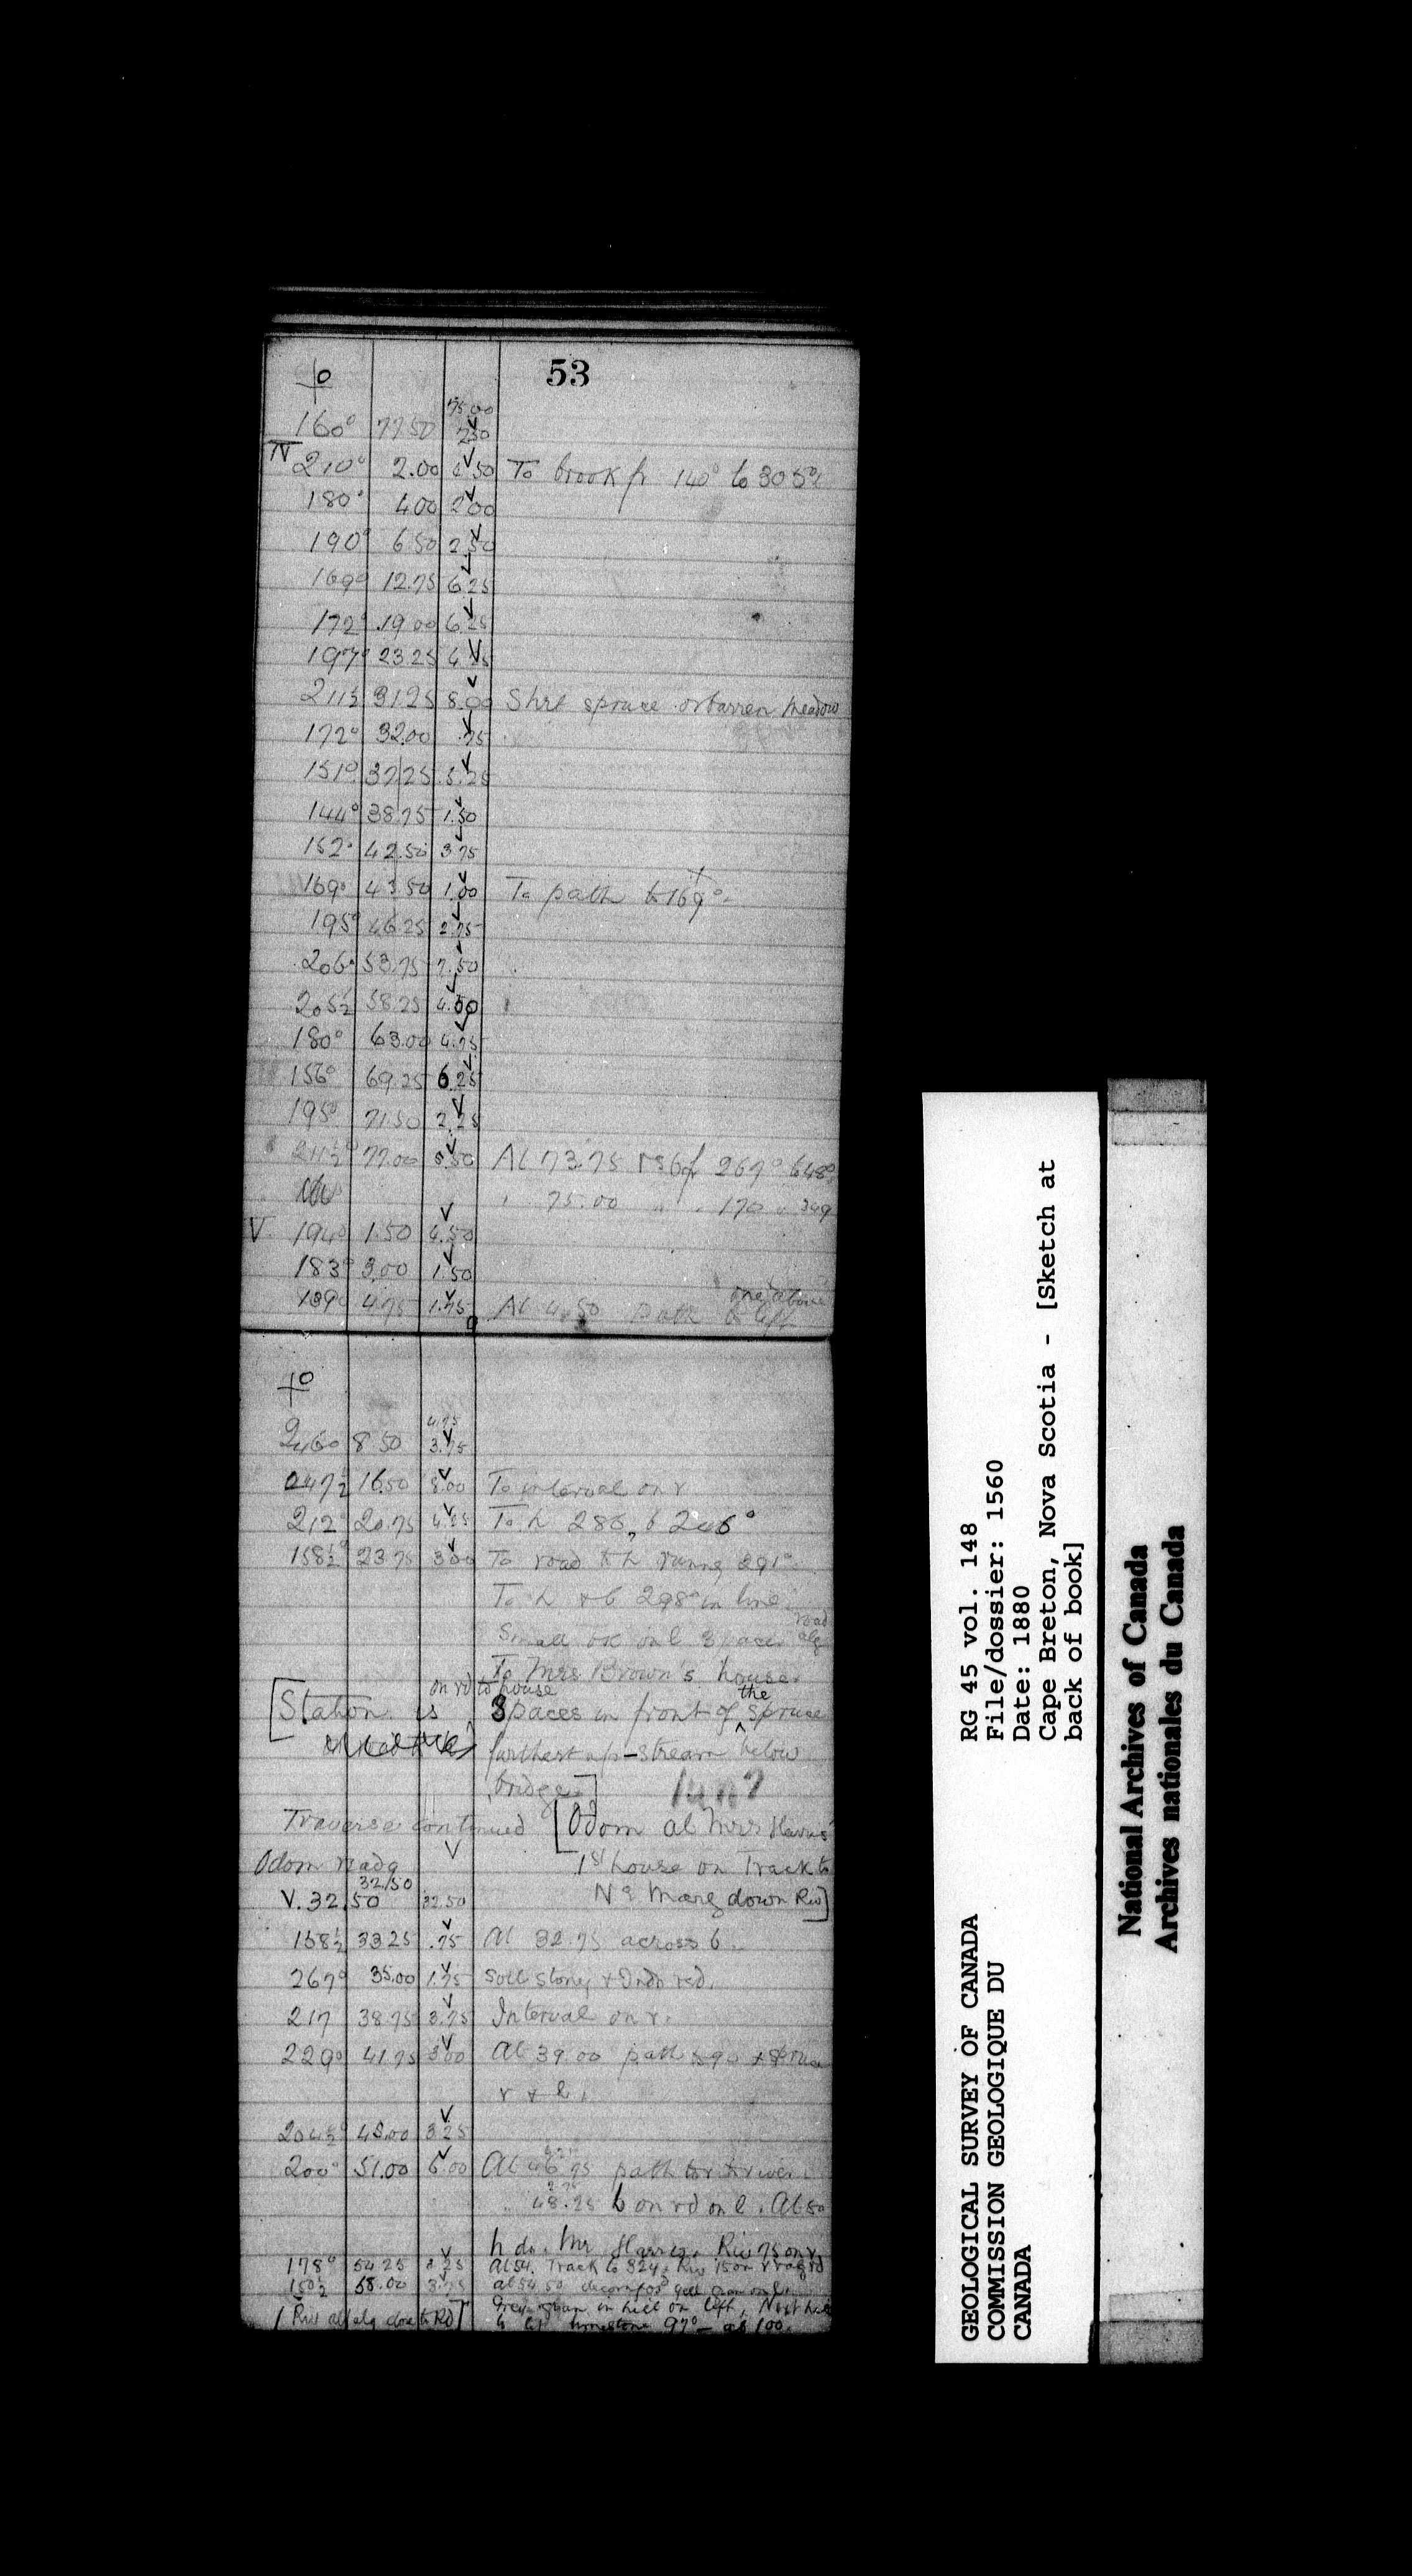 53
75.00
160° 77.50 2.50
IV 210° 2.00 4.50 To brook fr 140° to 305°
180° 4.00 2.00
190° 6.50 2.50
169° 12.75 6.25
172° 19.00 6.25
197° 23.25 4.25
211½ 31.25 8.00 Shrt spruce or barren meadow
172° 32.00 .75
151° 37.25 5.25
144° 38.75 1.50
152° 42.50 3.75
169° 43.50 1.00 To path to 169°
195° 46.25 2.75
206° 53.75 7.50
205½ 58.25 4.50
180° 63.00 4.75
156° 69.25 6.25
195° 71.50 2.25
211½° 77.00 5.50 At 73.75 fr 267° to 48°
75.00 " " 170 " 349
V. 194° 1.50 4.50
183° 3.00 1.50
one above
189° 4.75 1.75 At 4.50 path to left
4.75
246° 8.50 3.75
247½ 16.50 8.00 To interval on r
212° 20.75 4.25 To h 286, b 246°
158½° 23.75 3.00 To road to h running 291°
To h & b 298° in line
road
Small on l 3 paces alg
To Mrs Brown's house.
on rd to house
[Station is 3 paces in front of the spruce
furthest up-stream below
bridge.]
Traverse continued [Odom at Mrs Harris'
Odom readg 1st house on Track to
32/50
V. 32.50 32.50 N.E. Marg down Riv]
158½ 33.25 .75 At 32.75 across b.
267° 35.00 1.75 Soil stony & red.
217 38.75 3.75 Interval on r.
229° 41.75 3.00 At 39.00 path & spruce
r & l.
204½° 45.00 3.25
200° 51.00 6.00 At 46.75 path to r to river.
48.25 b on rd on l. At 50
h do. Mr Harris. Riv 75 on r.
178° 54.25 3.25 At 54. Track to 324. Riv 15 on r
150½ 58.00 3.75 At 54.50
[Riv all alg close to Rd] Grey in hill on left,
limestone 97° at 100.
GEOLOGICAL SURVEY OF CANADA
COMMISSION GEOLOGIQUE DU
CANADA
RG 45 vol. 148
File/dossier: 1560
Date: 1880
Cape Breton, Nova Scotia - [Sketch at
back of book]
National Archives of Canada
Archives nationales du Canada